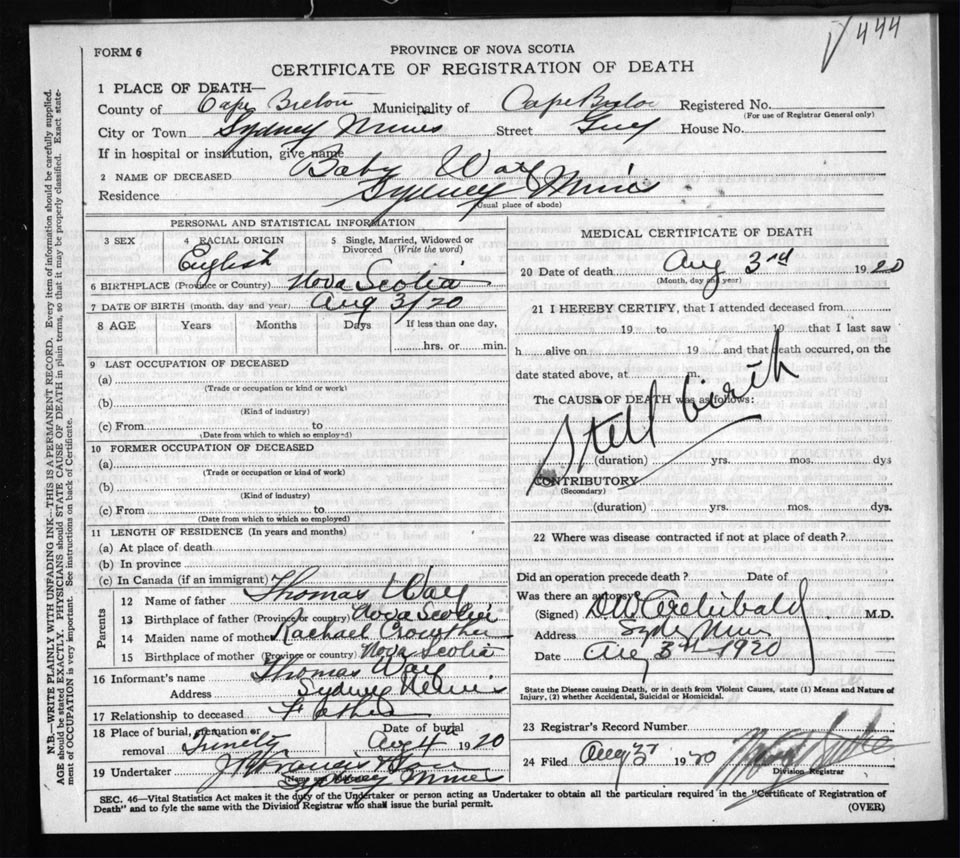 √ 444
FORM 6
PROVINCE OF NOVA SCOTIA
CERTIFICATE OF REGISTRATION OF DEATH
1 PLACE OF DEATH—
County of Cape Breton Municipality of Cape Breton Registered No.
(For use of Registrar General only)
City or Town Sydney Mines Street Guy House No.
If in hospital or institution, give name
2 NAME OF DECEASED Baby Way
Residence Sydney Mines
(Usual place of abode)
PERSONAL AND STATISTICAL INFORMATION
3 SEX 4 RACIAL ORIGIN 5 Single, Married, Widowed or Divorced (Write the word)
English
6 BIRTHPLACE (Province or Country) Nova Scotia
7 DATE OF BIRTH (month, day and year) Aug 3/20
8 AGE Years Months Days If less than one day,
hrs. or min.
9 LAST OCCUPATION OF DECEASED
(a)
(Trade or occupation or kind or work)
(b)
(Kind of industry)
(c) From to
(Date from which to which so employed)
10 FORMER OCCUPATION OF DECEASED
(a)
(Trade or occupation or kind of work)
(b)
(Kind of industry)
(c) From to
(Date from which to which so employed)
11 LENGTH OF RESIDENCE (In years and months)
(a) At place of death
(b) In province
(c) In Canada (if an immigrant)
Parents
12 Name of father Thomas Way
13 Birthplace of father (Province or country) Nova Scotia
14 Maiden name of mother Rachael
15 Birthplace of mother (Province or country) Nova Scotia
16 Informant's name Thomas Way
Address Sydney Mines
17 Relationship to deceased Father
18 Place of burial, cremation or removal Trinity Date of burial Aug 4th 1920
19 Undertaker Francis & Son
Sydney Mines
MEDICAL CERTIFICATE OF DEATH
20 Date of death Aug 3rd 1920
(Month, day and year)
21 I HEREBY CERTIFY, that I attended deceased from
19 to 19 that I last saw
h alive on 19 and that death occurred, on the
date stated above, at m.
The CAUSE OF DEATH was as follows:
Still birth
(duration) yrs. mos. dys
CONTRIBUTORY
(Secondary)
(duration) yrs. mos. dys.
22 Where was disease contracted if not at place of death?
Did an operation precede death? Date of
Was there an autopsy
(Signed) Archibald M.D.
Address Sydney Mines
Date Aug 3rd 1920
State the Disease causing Death, or in death from Violent Causes, state (1) Means and Nature of
Injury, (2) whether Accidental, Suicidal or Homicidal.
23 Registrar's Record Number
24 Filed Aug 1920
Division Registrar
SEC. 46—Vital Statistics Act makes it the duty of the Undertaker or person acting as Undertaker to obtain all the particulars required in the "Certificate of Registration of
Death" and to fyle the same with the Division Registrar who shall issue the burial permit.
(OVER)
N.B.—WRITE PLAINLY WITH UNFADING INK—THIS IS A PERMANENT RECORD. Every item of information should be carefully supplied.
AGE should be stated EXACTLY. PHYSICIANS should STATE CAUSE OF DEATH in plain terms, so that it may be properly classified. Exact state-
ment of OCCUPATION is very important. See instructions on back of Certificate.